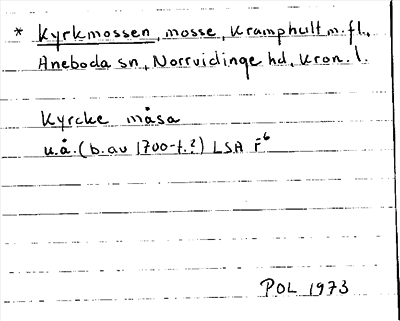 * Kyrkmossen, mosse, Kramphult m.fl.,
Aneboda sn, Norrvidinge hd, Kron. l.
Kyrcke måsa
u.å. (b. av 1700-t.?) LSA F⁶
POL 1973